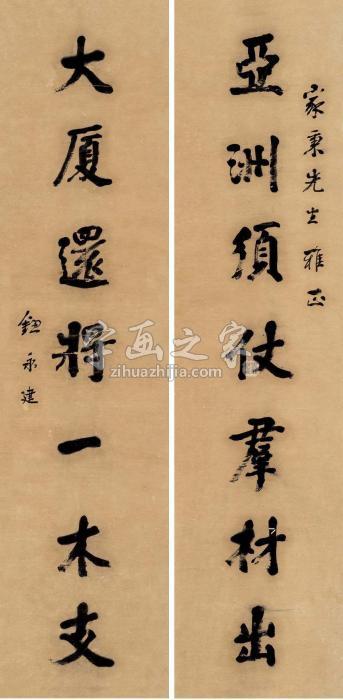 家秉先生雅正
亞洲須仗羣材出
大厦還將一木支
鈕永建
字画之家
zihuazhijia.com